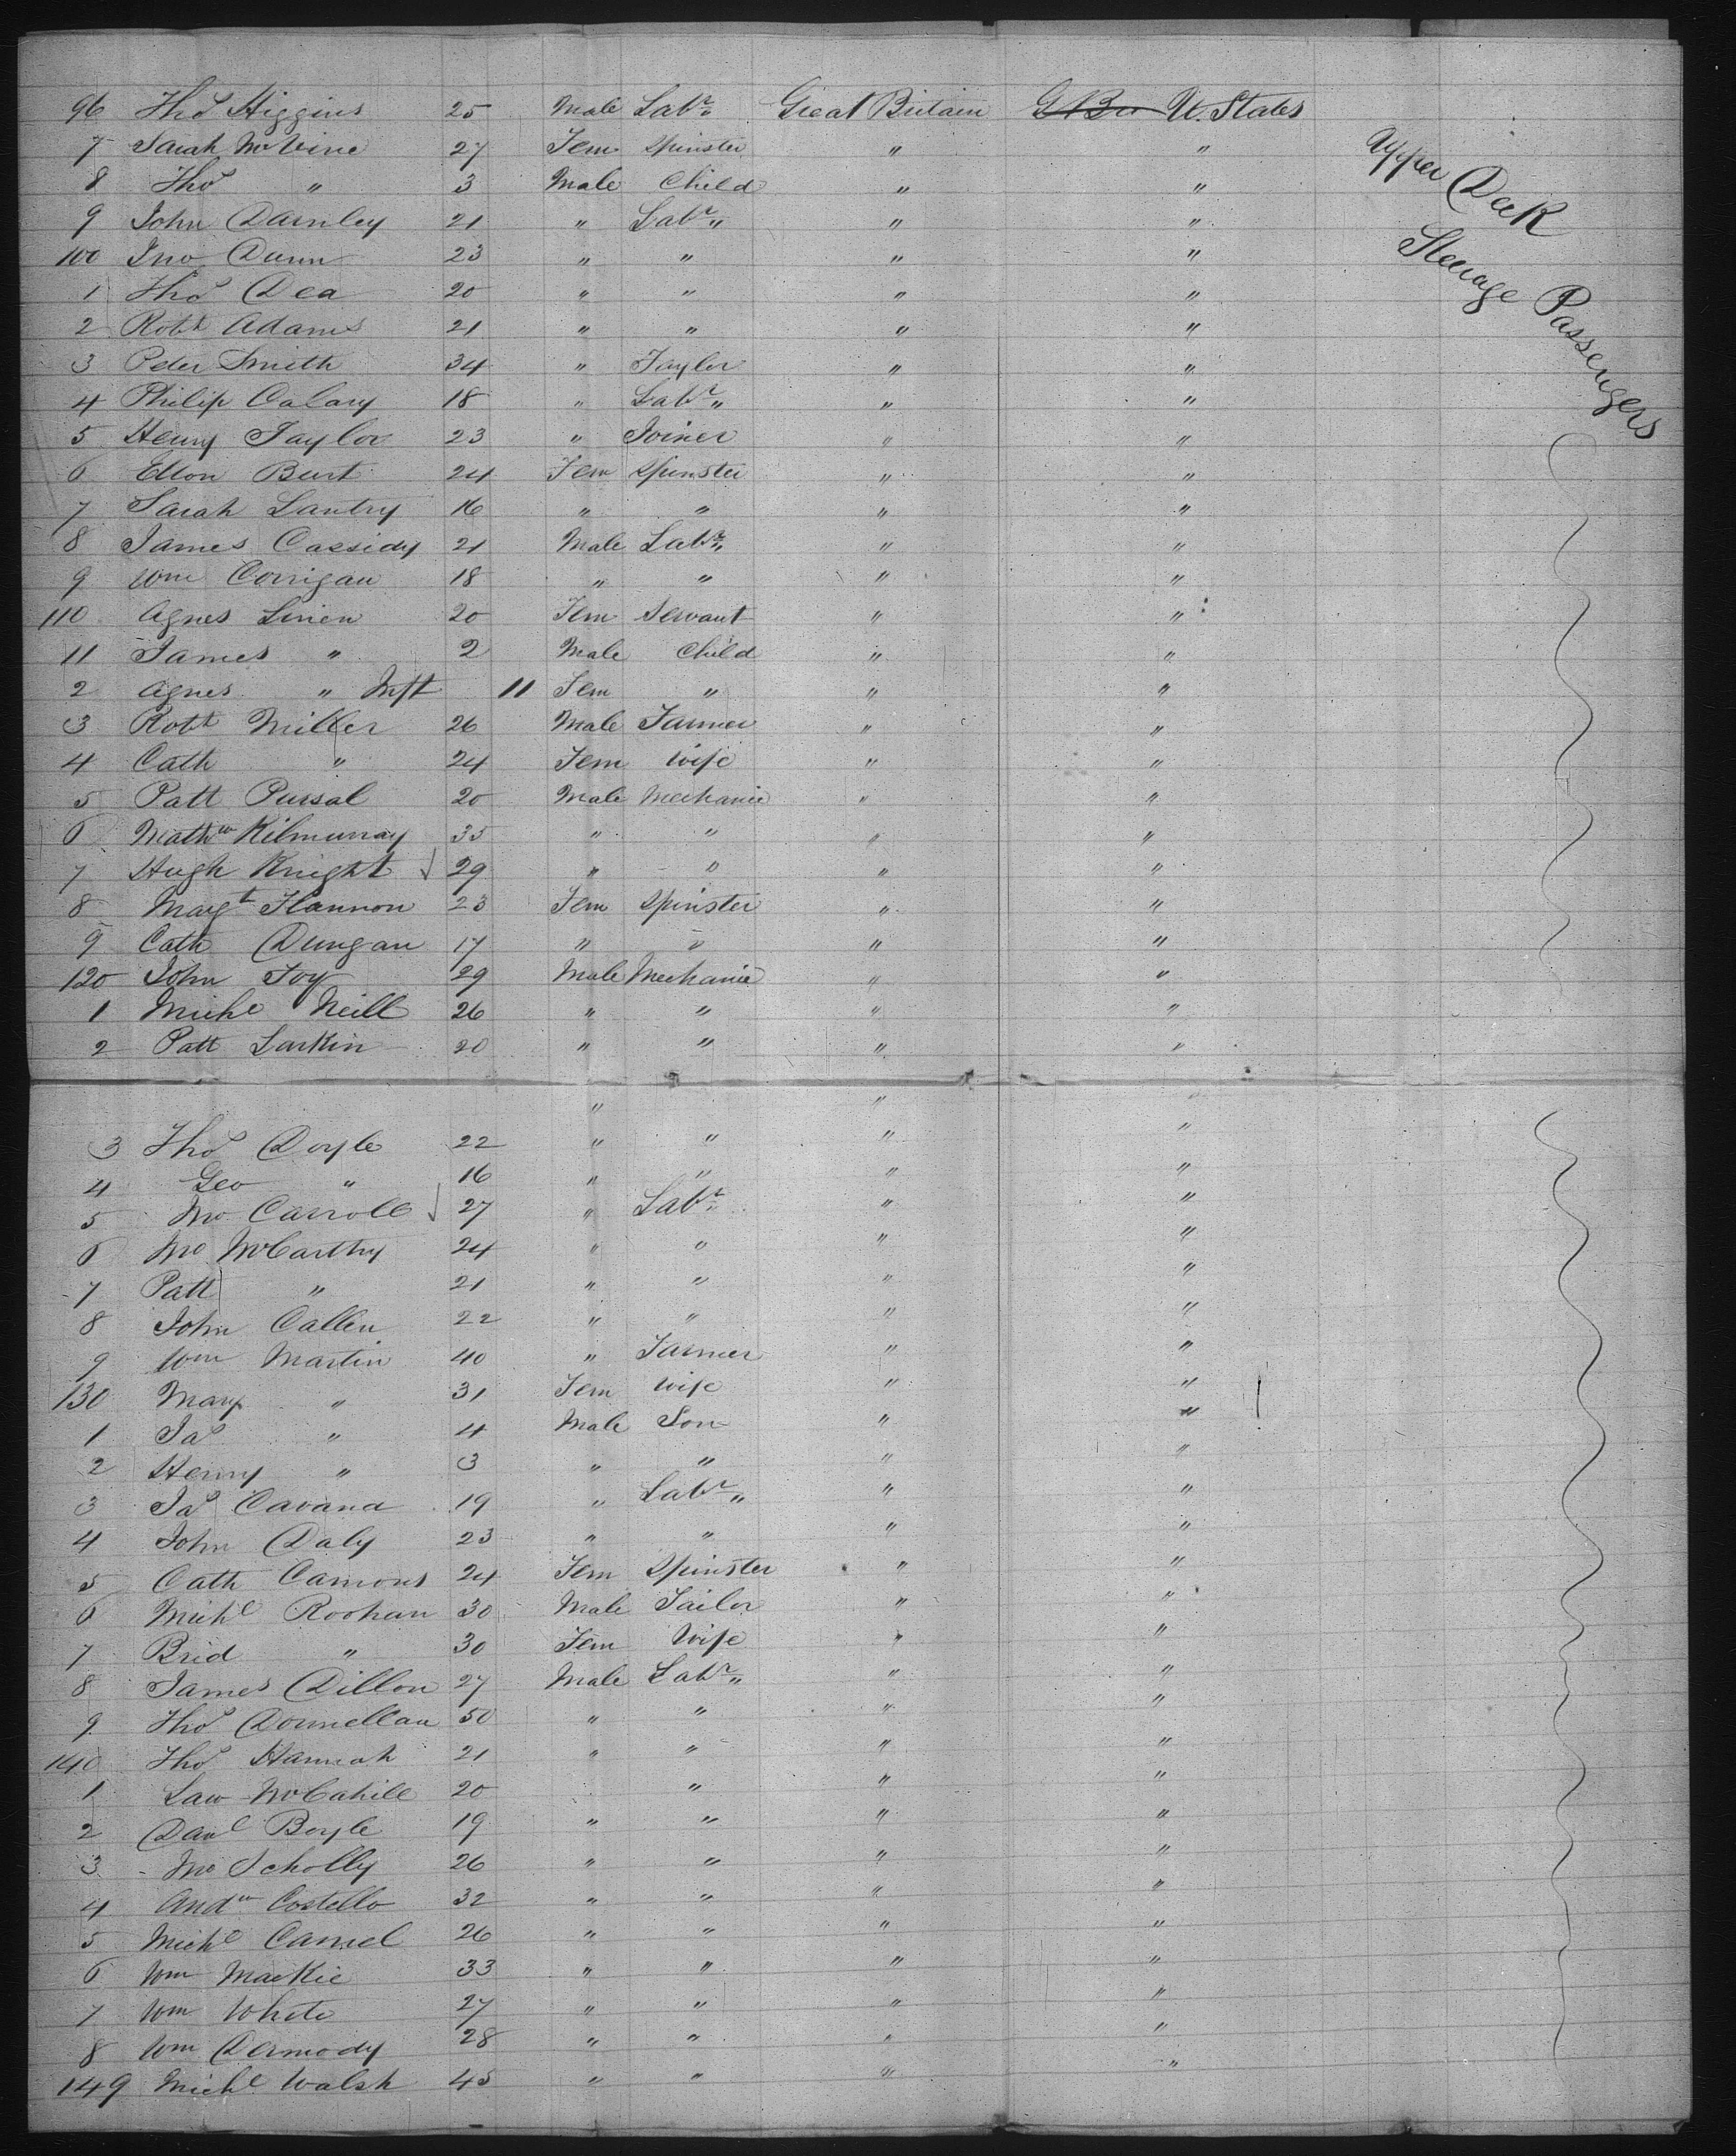 96 Thos Higgins 25 Male Labr Great Britain G Bri U. States
7 Sarah McVine 27 Fem Spinster " "
8 Thos " 3 Male Child " "
9 John Darnley 21 " Labr " " "
100 Jno Dunn 23 " " " "
1 Thos Dea 20 " " " "
2 Robt Adams 21 " " " "
3 Peter Smith 34 " Taylor " "
4 Philip Calary 18 " Labr " " "
5 Henry Taylor 23 " Joiner " "
6 Ellon Burt 24 Fem Spinster " "
7 Sarah Lantry 16 " " " "
8 James Cassidy 21 Male Labr " " "
9 Wm Corrigan 18 " " " "
110 Agnes Linen 20 Fem Servant " "
11 James " 2 Male Child " "
2 Agnes " Inft 11 Fem " " "
3 Robt Miller 26 Male Farmer " "
4 Cath " 24 Fem Wife " "
5 Patt Pursal 20 Male Mechanic " "
6 Mathw Kilmurray 35 " " " "
7 Hugh Knight 29 " " " "
8 Margt Hannon 23 Fem Spinster " "
9 Cath Dungan 17 " " " "
120 John Foy 29 Male Mechanic " "
1 Michl Neill 26 " " " "
2 Patt Larkin 20 " " " "
" "
3 Thos Doyle 22 " " " "
4 Geo " 16 " " " "
5 Jno Carroll 27 " Labr " "
6 Jno McCarthy 24 " " " "
7 Patt " 21 " " " "
8 John Callen 22 " " " "
9 Wm Martin 40 " Farmer " "
130 Mary " 31 Fem Wife " "
1 Jas " 4 Male Son " "
2 Henry " 3 " " " "
3 Jas Cavana 19 " Labr " " "
4 John Daly 23 " " " "
5 Cath Camons 24 Fem Spinster " "
6 Michl Roohan 30 Male Tailor " "
7 Brid " 30 Fem Wife " "
8 James Dillon 27 Male Labr " " "
9 Thos Donnellan 50 " " " "
140 Thos Hannah 21 " " " "
1 Law McCahill 20 " " "
2 Danl Boyle 19 " " " "
3 Jno Scholly 26 " " " "
4 Andw Costello 32 " " " "
5 Michl Camel 26 " " " "
6 Wm Mackie 33 " " " "
7 Wm White 27 " " " "
8 Wm Dermody 28 " " " "
149 Michl Walsh 45 " " " "
Upper Deck
Steerage Passengers